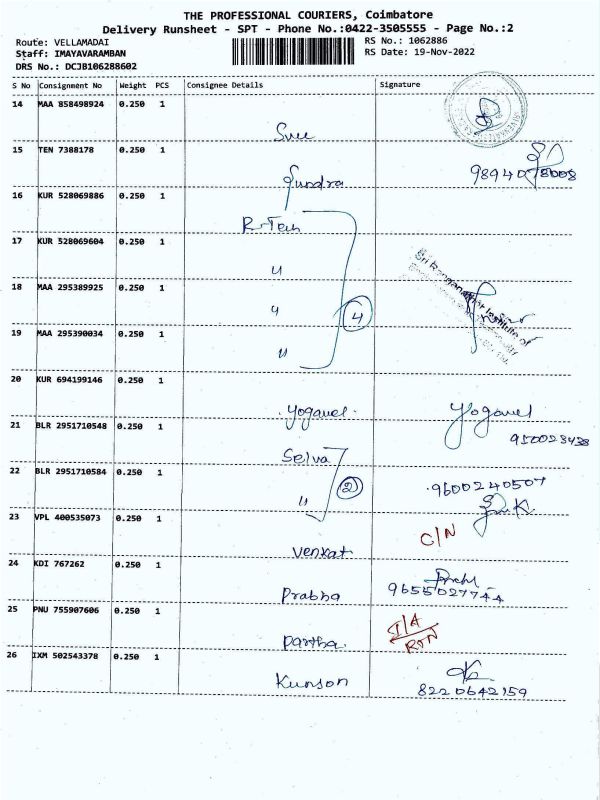 THE PROFESSIONAL COURIERS, Coimbatore
Delivery Runsheet - SPT - Phone No.:0422-3505555 - Page No.:2
Route: VELLAMADAI RS No.: 1062886
Staff: IMAYAVARAMBAN RS Date: 19-Nov-2022
DRS No.: DCJB106288602
S No Consignment No Weight PCS Consignee Details Signature
14 MAA 858498924 0.250 1
Sree
15 TEN 7388178 0.250 1
9894078008
Sundra
16 KUR 528069886 0.250 1
R-Tech
17 KUR 528069604 0.250 1
"
18 MAA 295389925 0.250 1
Sri Ranganathar Institute of
" 4
19 MAA 295390034 0.250 1
"
20 KUR 694199146 0.250 1
Yogavel Yogavel
21 BLR 2951710548 0.250 1 950023438
Selva
22 BLR 2951710584 0.250 1 9600240507
" 2
23 VPL 400535073 0.250 1
C/N
Venkat
24 KDI 767262 0.250 1
Prabha 9655027744
25 PNU 755907606 0.250 1
I/A
Partha RTN
26 IXM 502543378 0.250 1
Kunson 8220642159